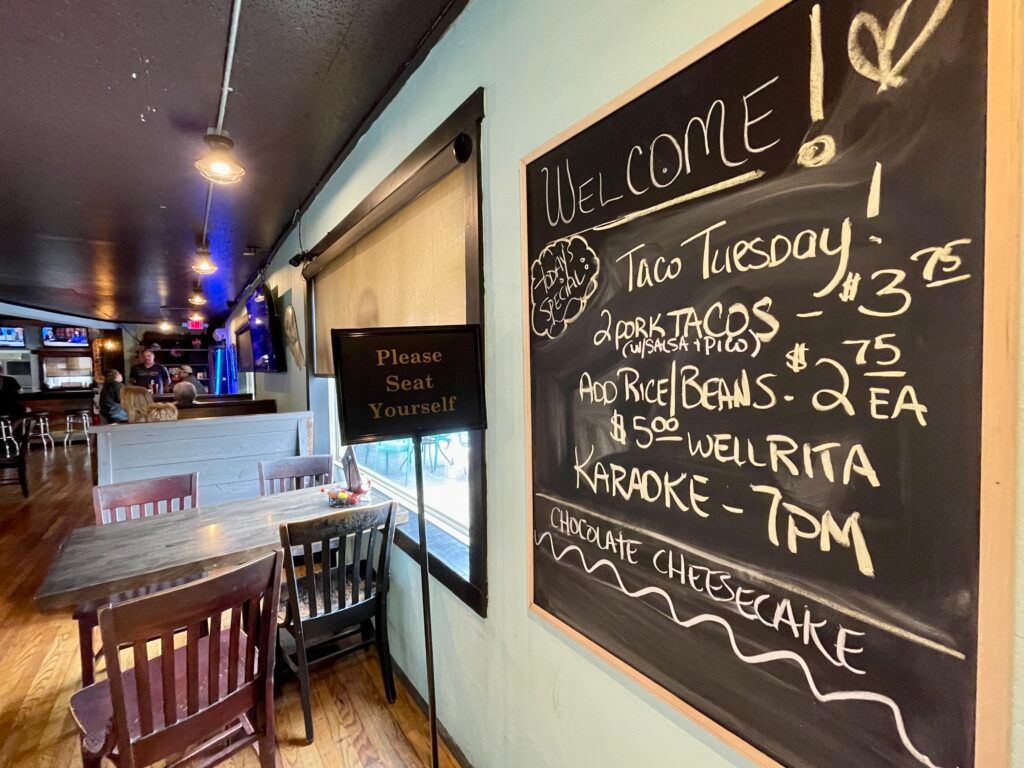 WELCOME!
TODAY'S
SPECIAL:
Taco Tuesday!
2 PORK TACOS - $3.75
(W/SALSA + PICO)
ADD RICE/BEANS - $2.75 EA
$5.00 WELL RITA
KARAOKE - 7PM
CHOCOLATE CHEESECAKE
Please
Seat
Yourself
EXIT